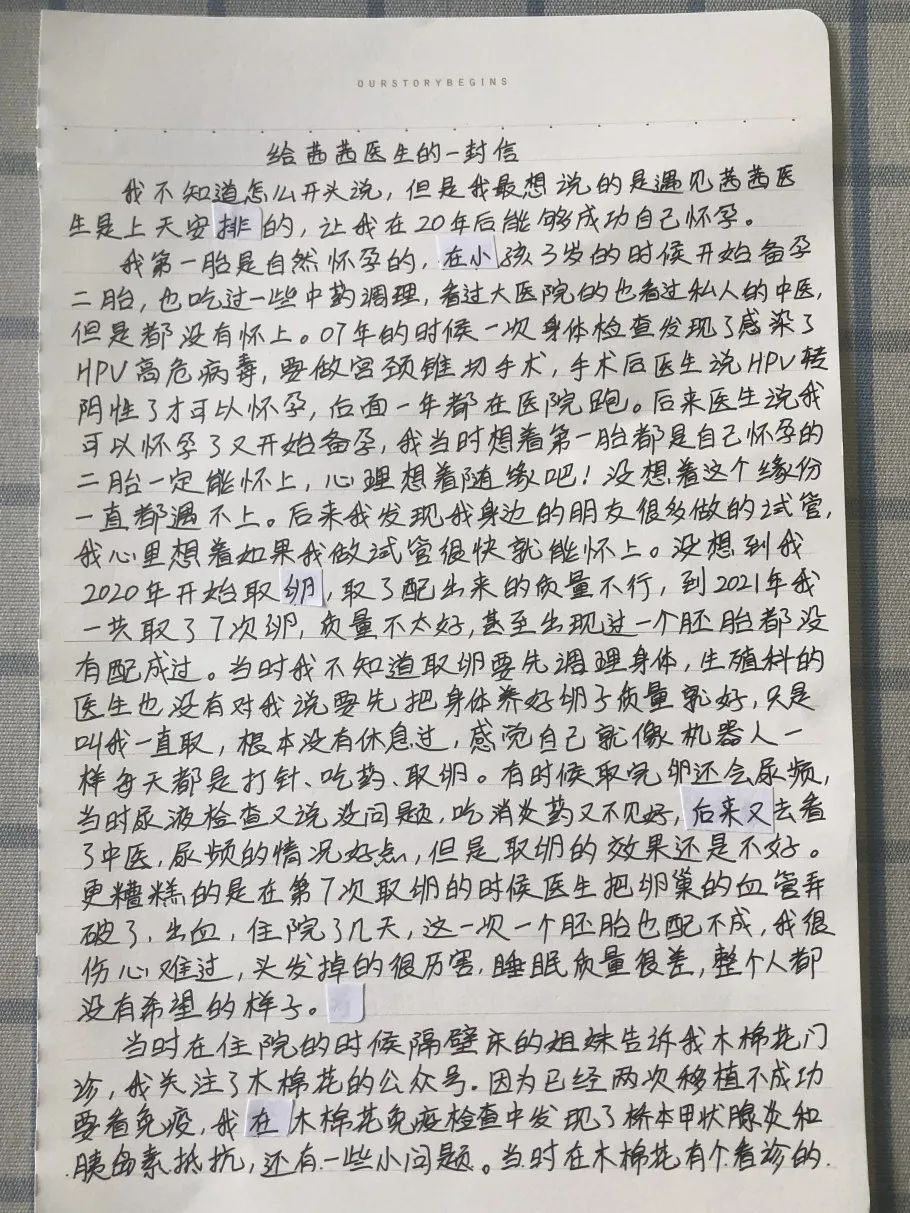 OURSTORYBEGINS
给茜茜医生的一封信
我不知道怎么开头说，但是我最想说的是遇见茜茜医
生是上天安排的，让我在20年后能够成功自己怀孕。
我第一胎是自然怀孕的，在小孩3岁的时候开始备孕
二胎，也吃过一些中药调理，看过大医院的也看过私人的中医，
但是都没有怀上。07年的时候一次身体检查发现了感染了
HPV高危病毒，要做宫颈锥切手术，手术后医生说HPV转
阴性了才可以怀孕，后面一年都在医院跑。后来医生说我
可以怀孕了又开始备孕，我当时想着第一胎都是自己怀孕的
二胎一定能怀上，心理想着随缘吧！没想着这个缘份
一直都遇不上。后来我发现我身边的朋友很多做的试管，
我心里想着如果我做试管很快就能怀上。没想到我
2020年开始取卵，取了配出来的质量不行，到2021年我
一共取了7次卵，质量不太好，甚至出现过一个胚胎都没
有配成过。当时我不知道取卵要先调理身体，生殖科的
医生也没有对我说要先把身体养好卵子质量就好，只是
叫我一直取，根本没有休息过，感觉自己就像机器人一
样每天都是打针、吃药、取卵。有时候取完卵还会尿频，
当时尿液检查又说没问题，吃消炎药又不见好，后来又去看
了中医，尿频的情况好点，但是取卵的效果还是不好。
更糟糕的是在第7次取卵的时候医生把卵巢的血管弄
破了，出血，住院了几天，这一次一个胚胎也配不成，我很
伤心难过，头发掉的很厉害，睡眠质量很差，整个人都
没有希望的样子。
当时在住院的时候隔壁床的姐妹告诉我木棉花门
诊，我关注了木棉花的公众号。因为已经两次移植不成功
要看免疫，我在木棉花免疫检查中发现了桥本甲状腺炎和
胰岛素抵抗，还有一些小问题。当时在木棉花有个看诊的